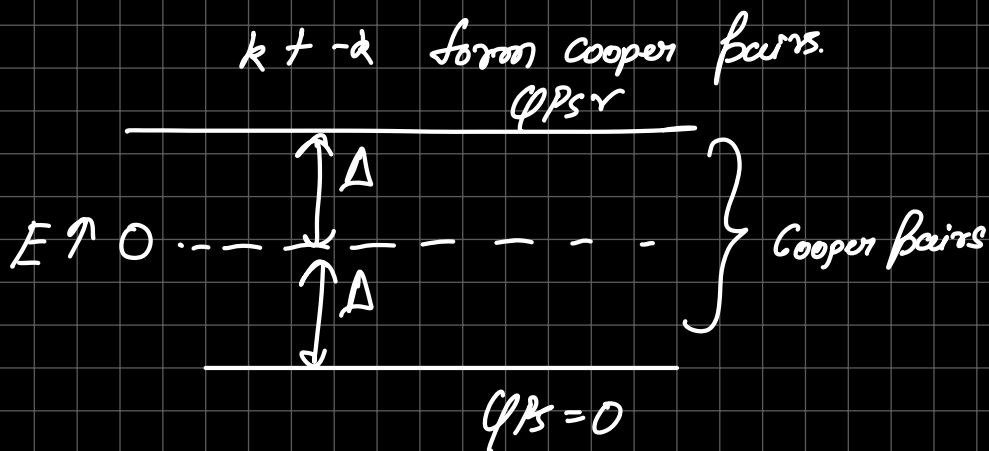 k + -k form Cooper pairs.
QPs ✓
Δ
E ↑ 0 Cooper pairs
Δ
QPs = 0